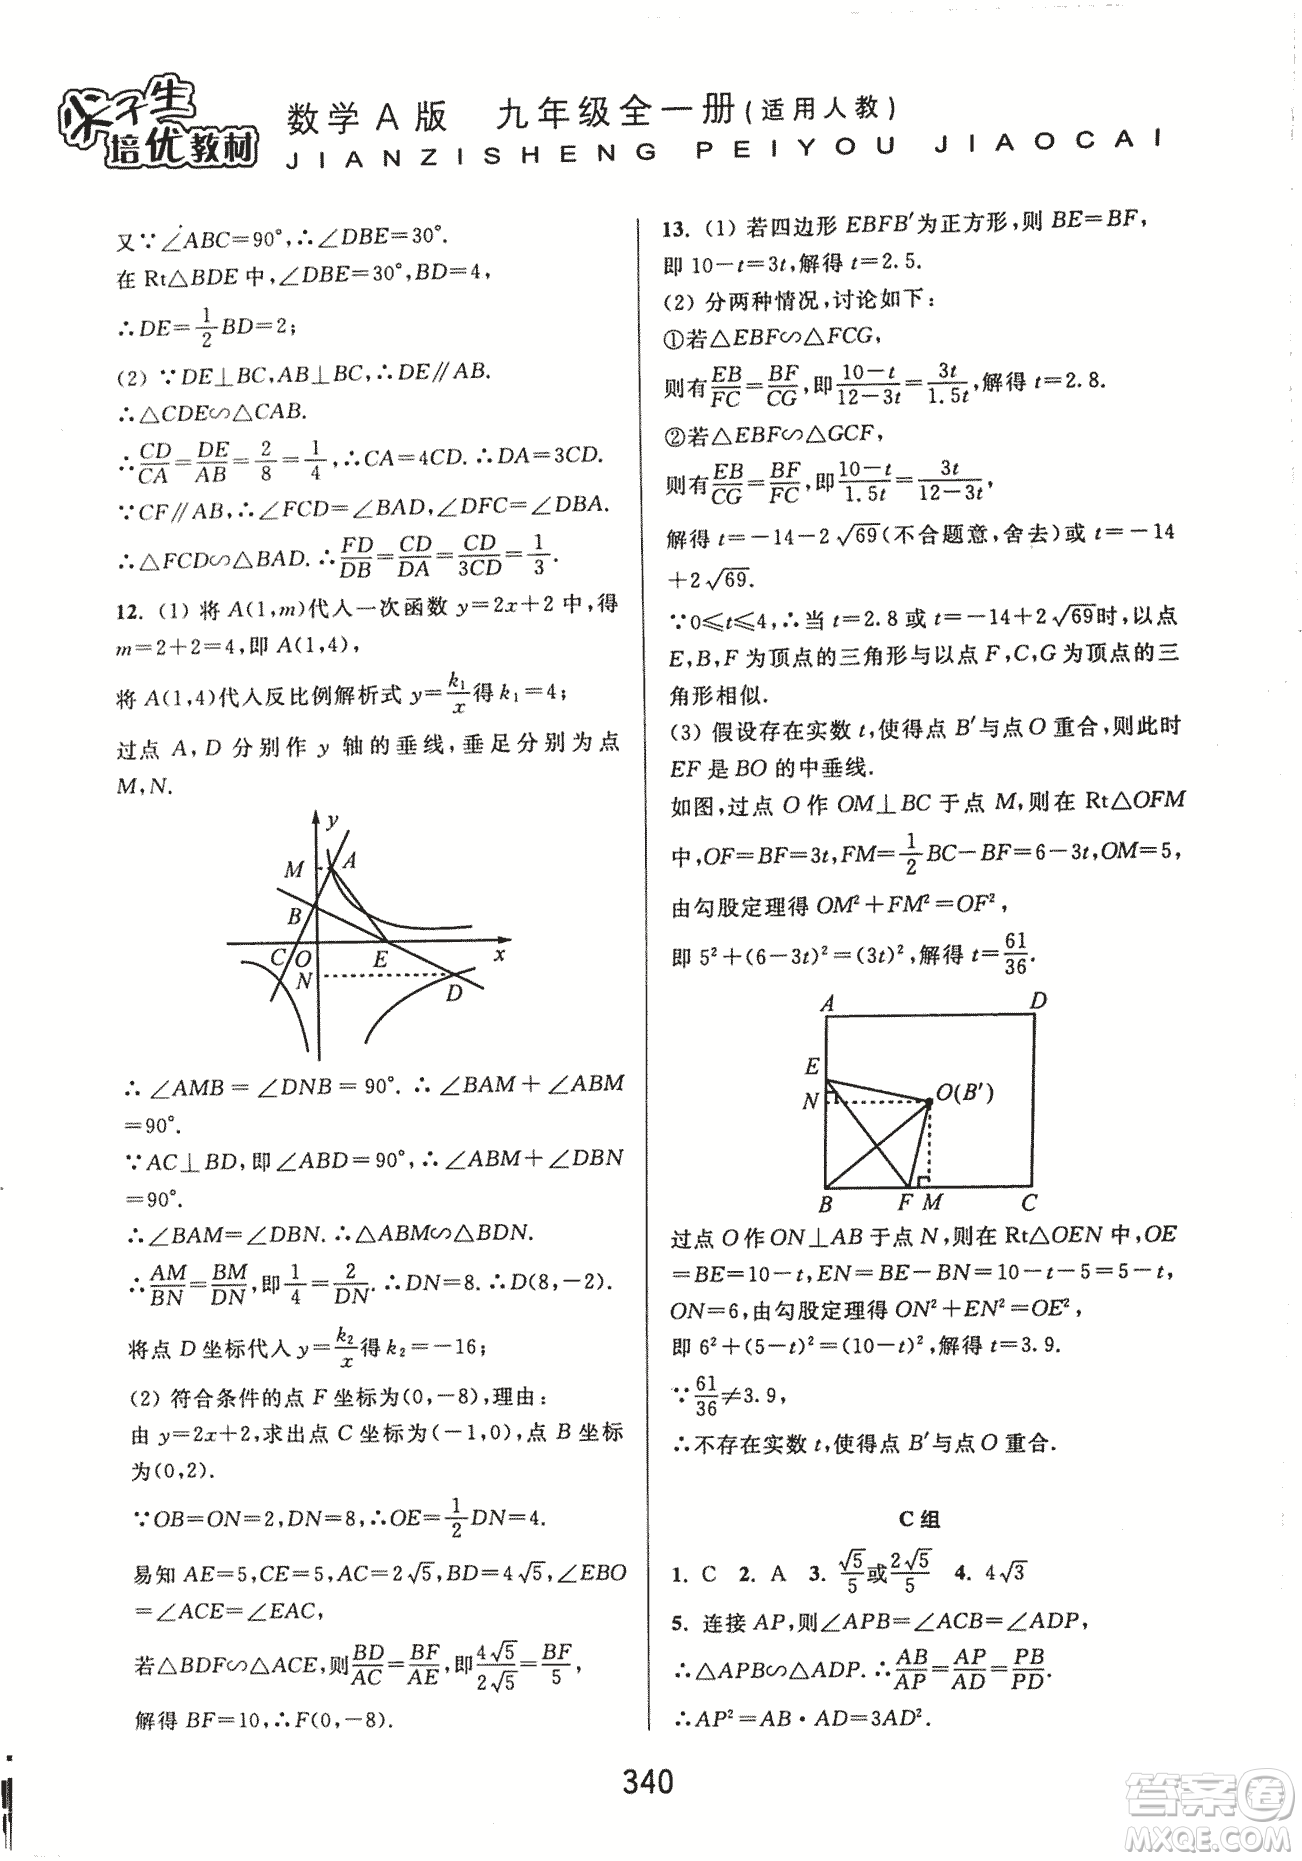 尖子生
培优教材
数学A版 九年级全一册(适用人教)
JIANZISHENG PEIYOU JIAOCAI
又∵∠ABC=90°,∴∠DBE=30°.
在 Rt△BDE 中,∠DBE=30°,BD=4,
∴DE=1/2BD=2;
(2) ∵DE⊥BC,AB⊥BC,∴DE∥AB.
∴△CDE∽△CAB.
∴CD/CA=DE/AB=2/8=1/4,∴CA=4CD.∴DA=3CD.
∵CF∥AB,∴∠FCD=∠BAD,∠DFC=∠DBA.
∴△FCD∽△BAD.∴FD/DB=CD/DA=CD/3CD=1/3.
12. (1) 将 A(1,m)代入一次函数 y=2x+2 中,得
m=2+2=4,即 A(1,4),
将 A(1,4)代入反比例解析式 y=k₁/x得 k₁=4;
过点 A,D 分别作 y 轴的垂线,垂足分别为点
M,N.
y
M
A
B
C
O
E
x
N
D
∴∠AMB=∠DNB=90°.∴∠BAM+∠ABM
=90°.
∵AC⊥BD,即∠ABD=90°,∴∠ABM+∠DBN
=90°.
∴∠BAM=∠DBN.∴△ABM∽△BDN.
∴AM/BN=BM/DN,即1/4=2/DN.∴DN=8.∴D(8,-2).
将点 D 坐标代入y=k₂/x得 k₂=-16;
(2) 符合条件的点 F 坐标为(0,-8),理由:
由 y=2x+2,求出点 C 坐标为(-1,0),点 B 坐标
为(0,2).
∵OB=ON=2,DN=8,∴OE=1/2DN=4.
易知 AE=5,CE=5,AC=2√5,BD=4√5,∠EBO
=∠ACE=∠EAC,
若△BDF∽△ACE,则BD/AC=BF/AE,即4√5/2√5=BF/5,
解得 BF=10,∴F(0,-8).
13. (1) 若四边形 EBFB′为正方形,则 BE=BF,
即 10-t=3t,解得 t=2.5.
(2) 分两种情况,讨论如下:
①若△EBF∽△FCG,
则有EB/FC=BF/CG,即(10-t)/(12-3t)=3t/1.5t,解得 t=2.8.
②若△EBF∽△GCF,
则有EB/CG=BF/FC,即(10-t)/1.5t=3t/(12-3t),
解得 t=-14-2√69(不合题意,舍去)或 t=-14
+2√69.
∵0≤t≤4,∴当 t=2.8 或 t=-14+2√69时,以点
E,B,F 为顶点的三角形与以点 F,C,G 为顶点的三
角形相似.
(3) 假设存在实数 t,使得点 B′与点 O 重合,则此时
EF 是 BO 的中垂线.
如图,过点 O 作 OM⊥BC 于点 M,则在 Rt△OFM
中,OF=BF=3t,FM=1/2BC-BF=6-3t,OM=5,
由勾股定理得 OM²+FM²=OF²,
即 5²+(6-3t)²=(3t)²,解得 t=61/36.
A
D
E
N
O(B′)
B
F
M
C
过点 O 作 ON⊥AB 于点 N,则在 Rt△OEN 中,OE
=BE=10-t,EN=BE-BN=10-t-5=5-t,
ON=6,由勾股定理得 ON²+EN²=OE²,
即 6²+(5-t)²=(10-t)²,解得 t=3.9.
∵61/36≠3.9,
∴不存在实数 t,使得点 B′与点 O 重合.
C 组
1. C 2. A 3. √5/5或2√5/5 4. 4√3
5. 连接 AP,则∠APB=∠ACB=∠ADP,
∴△APB∽△ADP.∴AB/AP=AP/AD=PB/PD.
∴AP²=AB·AD=3AD².
340
答案圈
MXQE.COM